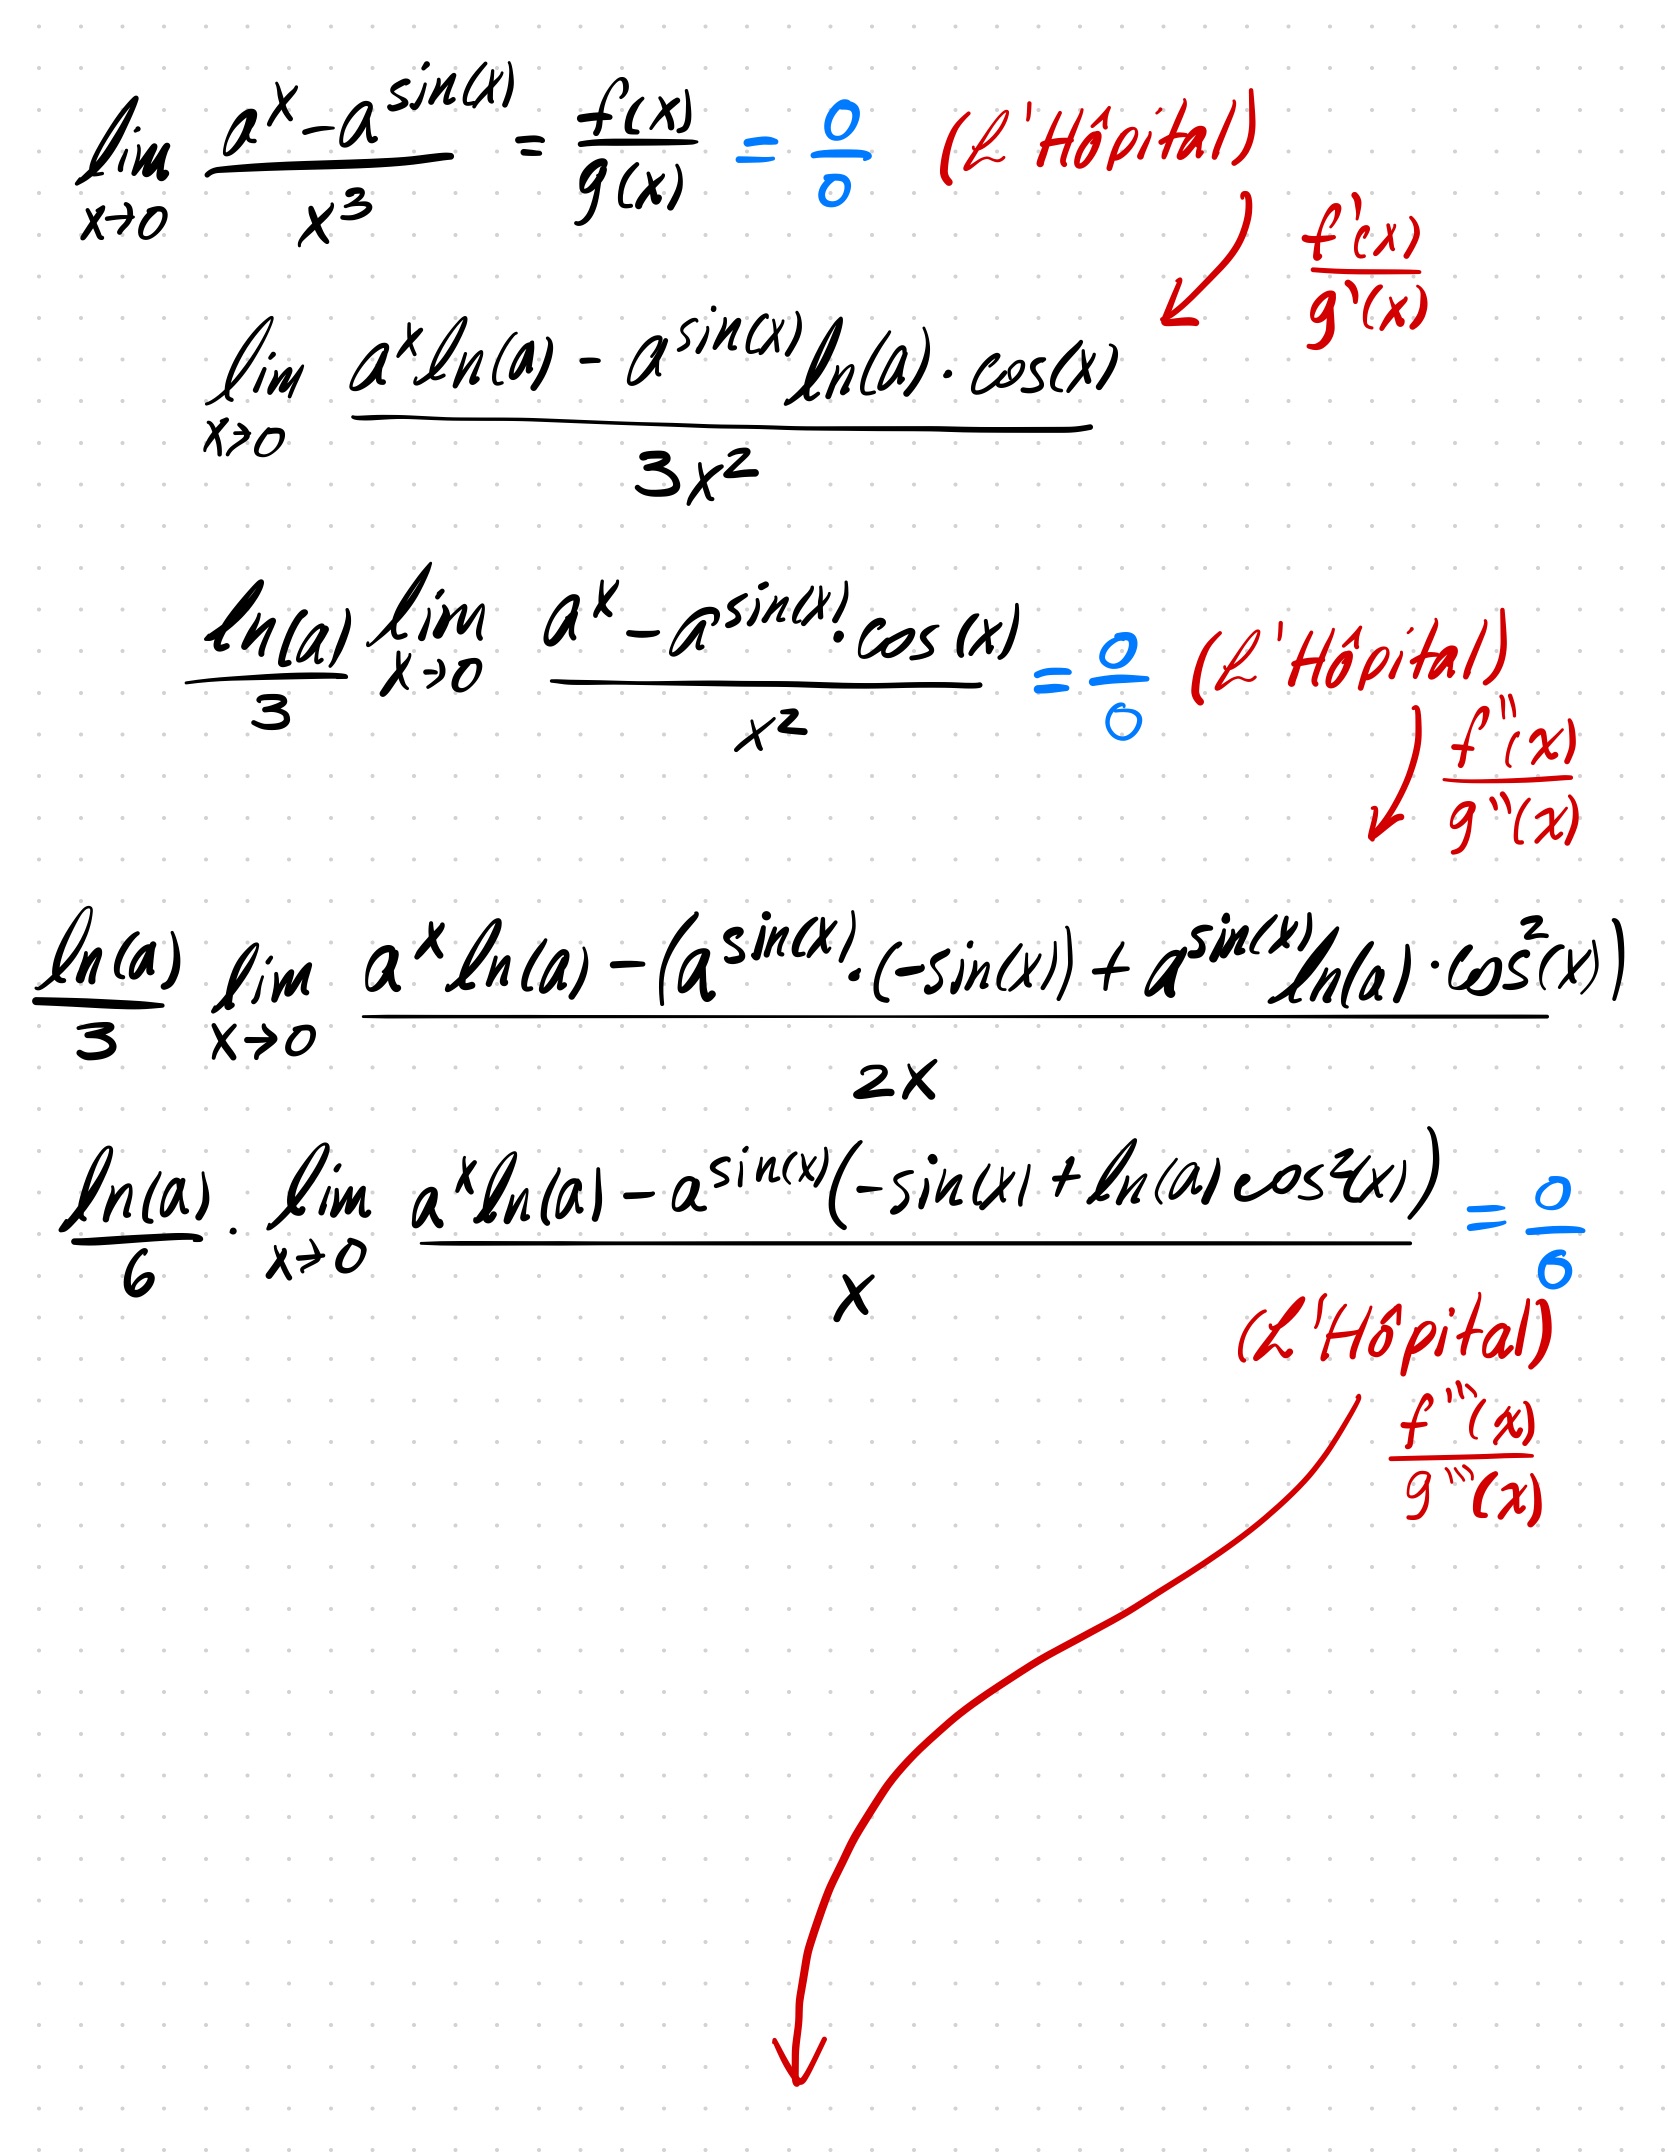 lim x→0 (a^x - a^sin(x)) / x^3 = f(x)/g(x) = 0/0 (L'Hôpital)
f'(x)/g'(x)
lim x→0 (a^x ln(a) - a^sin(x) ln(a) · cos(x)) / 3x^2
ln(a)/3 lim x→0 (a^x - a^sin(x) · cos(x)) / x^2 = 0/0 (L'Hôpital)
f''(x)/g''(x)
ln(a)/3 lim x→0 (a^x ln(a) - (a^sin(x) · (-sin(x)) + a^sin(x) ln(a) · cos^2(x))) / 2x
ln(a)/6 · lim x→0 (a^x ln(a) - a^sin(x) (-sin(x) + ln(a) cos^2(x))) / x = 0/0
(L'Hôpital)
f'''(x)/g'''(x)